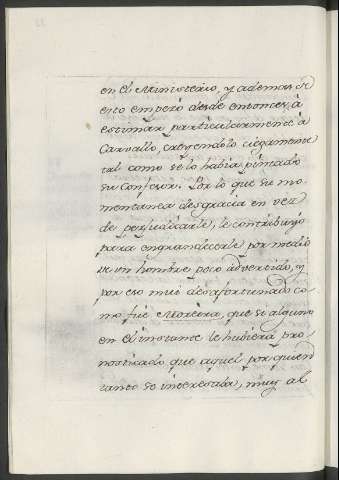 en el Ministerio, y ademas de
esto empezó desde entonces à
estimar particularmente à
Carvallo, creyendolo ciegamente
tal como se lo habia pintado
su Confesor. Por lo que su mo-
mentanea desgracia en vez
de perjudicarle, le contribuyó
para engrandecerle por medio
de un hombre poco advertido, y
por eso mui desafortunado co-
mo fue Moreira, que si alguno
en el instante le hubiera pro-
nosticado que aquel por quien
tanto se interesaba, muy al